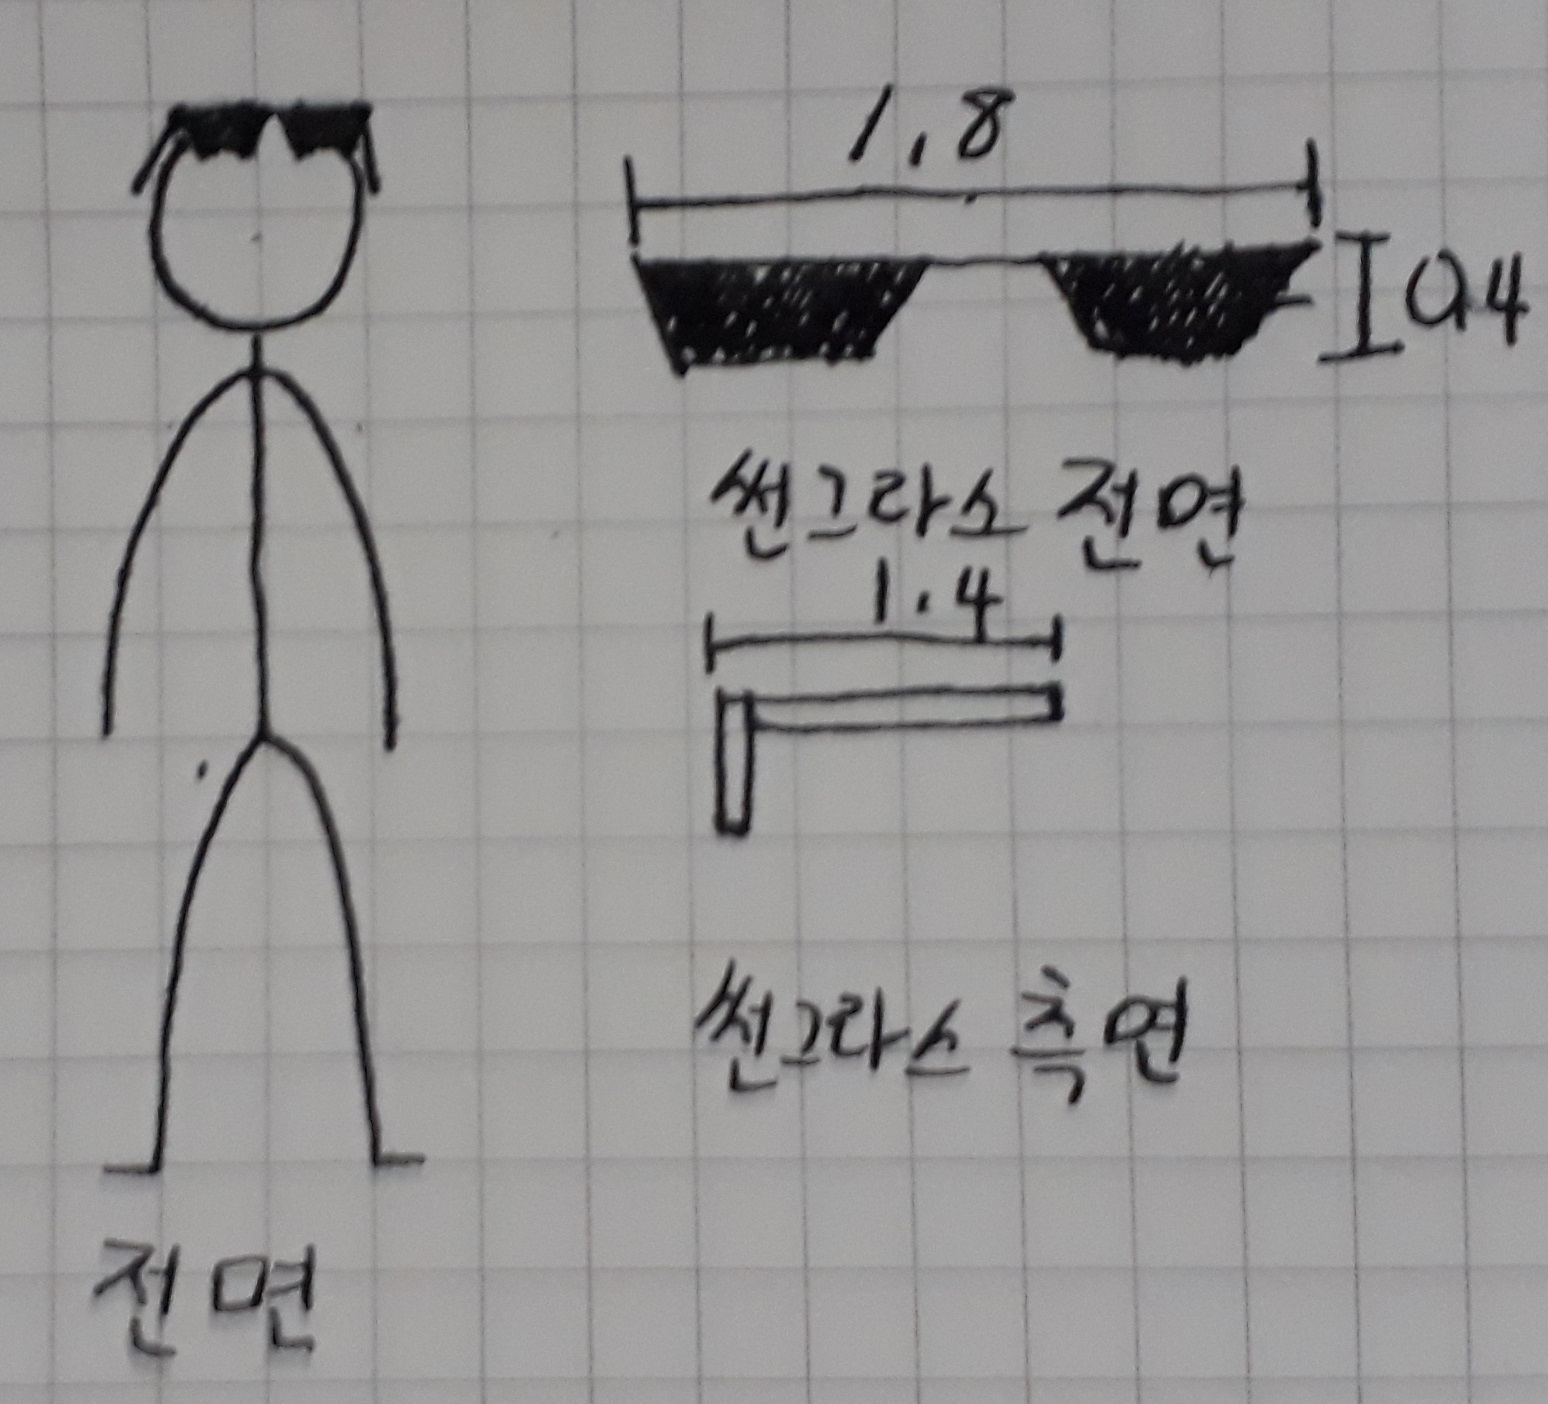 1.8
0.4
썬그라스 전면
1.4
썬그라스 측면
전면